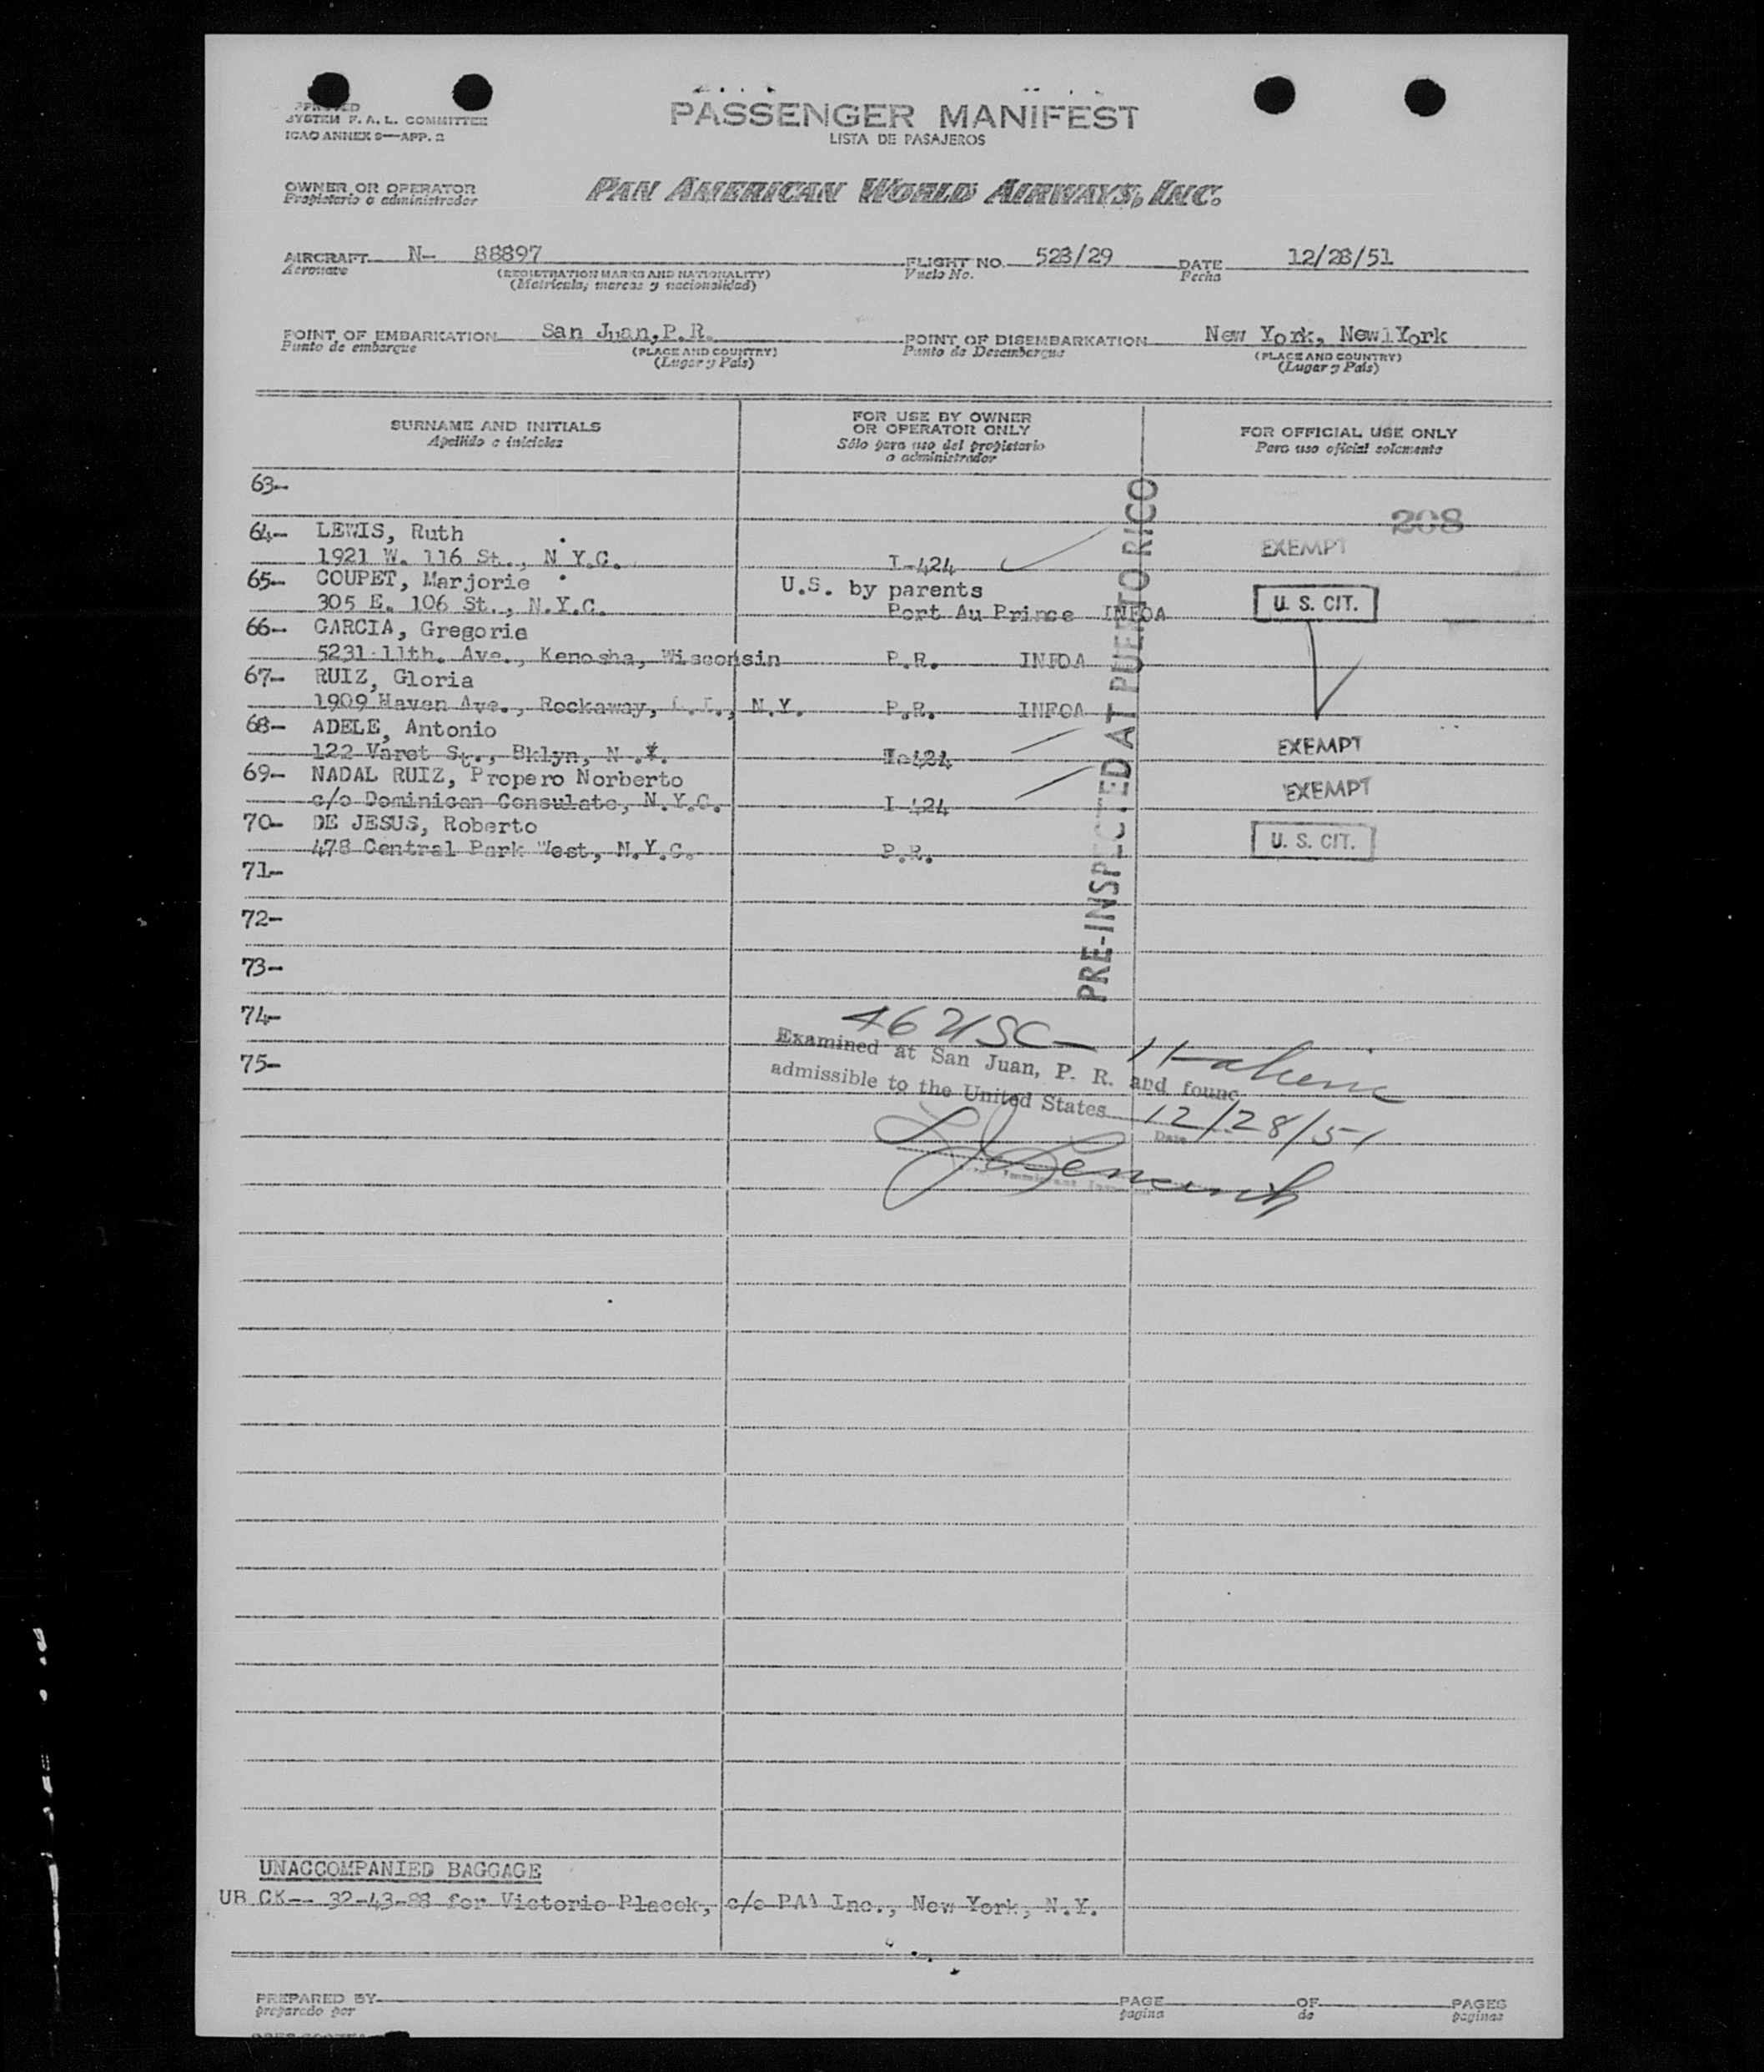 SYSTEM F. A. L. COMMITTEE
ICAO ANNEX 9—APP. 2
PASSENGER MANIFEST
LISTA DE PASAJEROS
OWNER OR OPERATOR
Propietario o administrador
PAN AMERICAN WORLD AIRWAYS, INC.
AIRCRAFT N- 88897 FLIGHT NO. 528/29 DATE 12/28/51
Aeronave (REGISTRATION MARKS AND NATIONALITY) Vuelo No. Fecha
(Matrícula, marcas y nacionalidad)
POINT OF EMBARKATION San Juan, P.R. POINT OF DISEMBARKATION New York, New York
Punto de embarque (PLACE AND COUNTRY) Punto de Desembarque (PLACE AND COUNTRY)
(Lugar y País) (Lugar y País)
SURNAME AND INITIALS
Apellido e iniciales
FOR USE BY OWNER
OR OPERATOR ONLY
Sólo para uso del propietario
o administrador
FOR OFFICIAL USE ONLY
Para uso oficial solamente
63-
208
64- LEWIS, Ruth EXEMPT
1921 W. 116 St., N.Y.C. I-424
65- COUPET, Marjorie U.S. by parents U. S. CIT.
305 E. 106 St., N.Y.C. Port Au Prince INFOA
66- GARCIA, Gregoria
5231 11th. Ave., Kenosha, Wisconsin P.R. INFOA
67- RUIZ, Gloria
1909 Haven Ave., Rockaway, L.I., N.Y. P.R. INFOA
68- ADELE, Antonio EXEMPT
122 Varet St., Bklyn, N.Y. I-424
69- NADAL RUIZ, Propero Norberto EXEMPT
c/o Dominican Consulate, N.Y.C. I-424
70- DE JESUS, Roberto U. S. CIT.
478 Central Park West, N.Y.C. P.R.
71-
72-
73-
74-
75-
PRE-INSPECTED AT PUERTO RICO
46 USC- 11-aliens
Examined at San Juan, P. R. and found
admissible to the United States 12/28/51
Date
UNACCOMPANIED BAGGAGE
UB CK-- 32-43-88 for Victorio Placek, c/o PAA Inc., New York, N.Y.
PREPARED BY PAGE OF PAGES
preparado por pagina de paginas